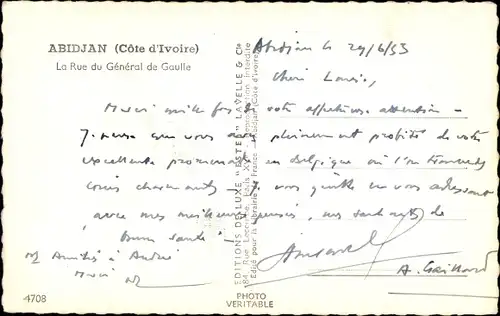 ABIDJAN (Côte d'Ivoire)
La Rue du Général de Gaulle
Abidjan le 29/6/53
Cher Louis,
Merci mille fois de votre affectueuse attention -
J'pense que vous avez pleinement profité de votre
excellente promenade en Belgique où l'on
coins charmants - Je vous quitte en vous adressant
avec mes meilleures pensées, mes souhaits de
Bonne santé -
Amitiés à André
Merci
A. Gaillard
EDITIONS DE LUXE "ESTEL" LAVELLE & Cie
84, Rue Lecourbe, PARIS XVe - Reproduction Interdite
Edité pour la Librairie de France - Abidjan (Côte d'Ivoire)
4708
PHOTO
VERITABLE